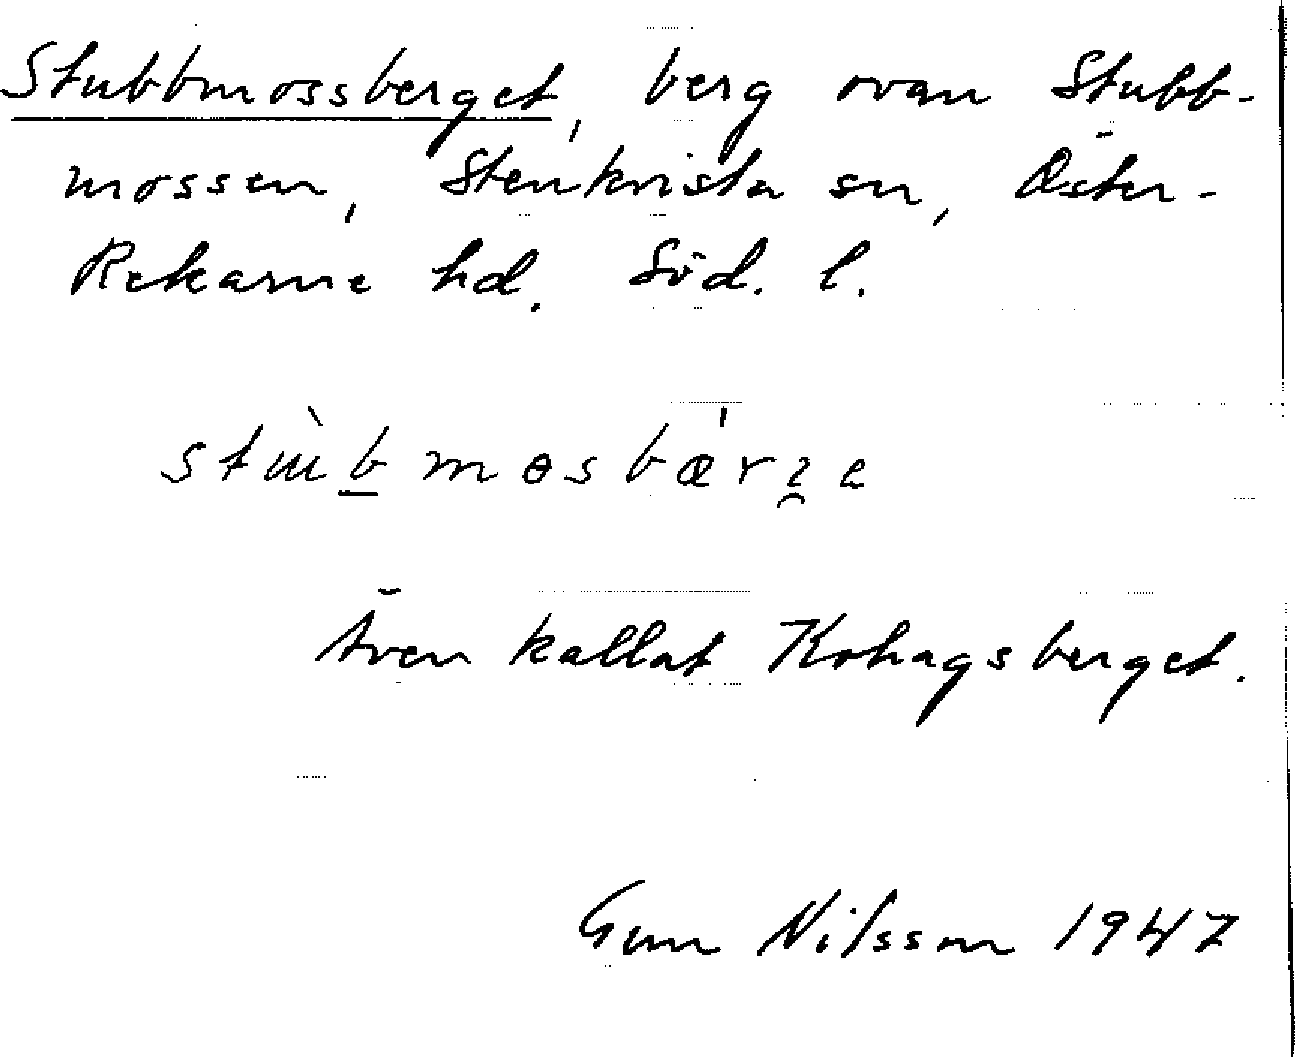 Stubbmossberget, berg ovan Stubb-
mossen, Stenkvista sn, Öster-
Rekarne hd. Söd. l.
Även kallat Kohagsberget.
Gun Nilsson 1947